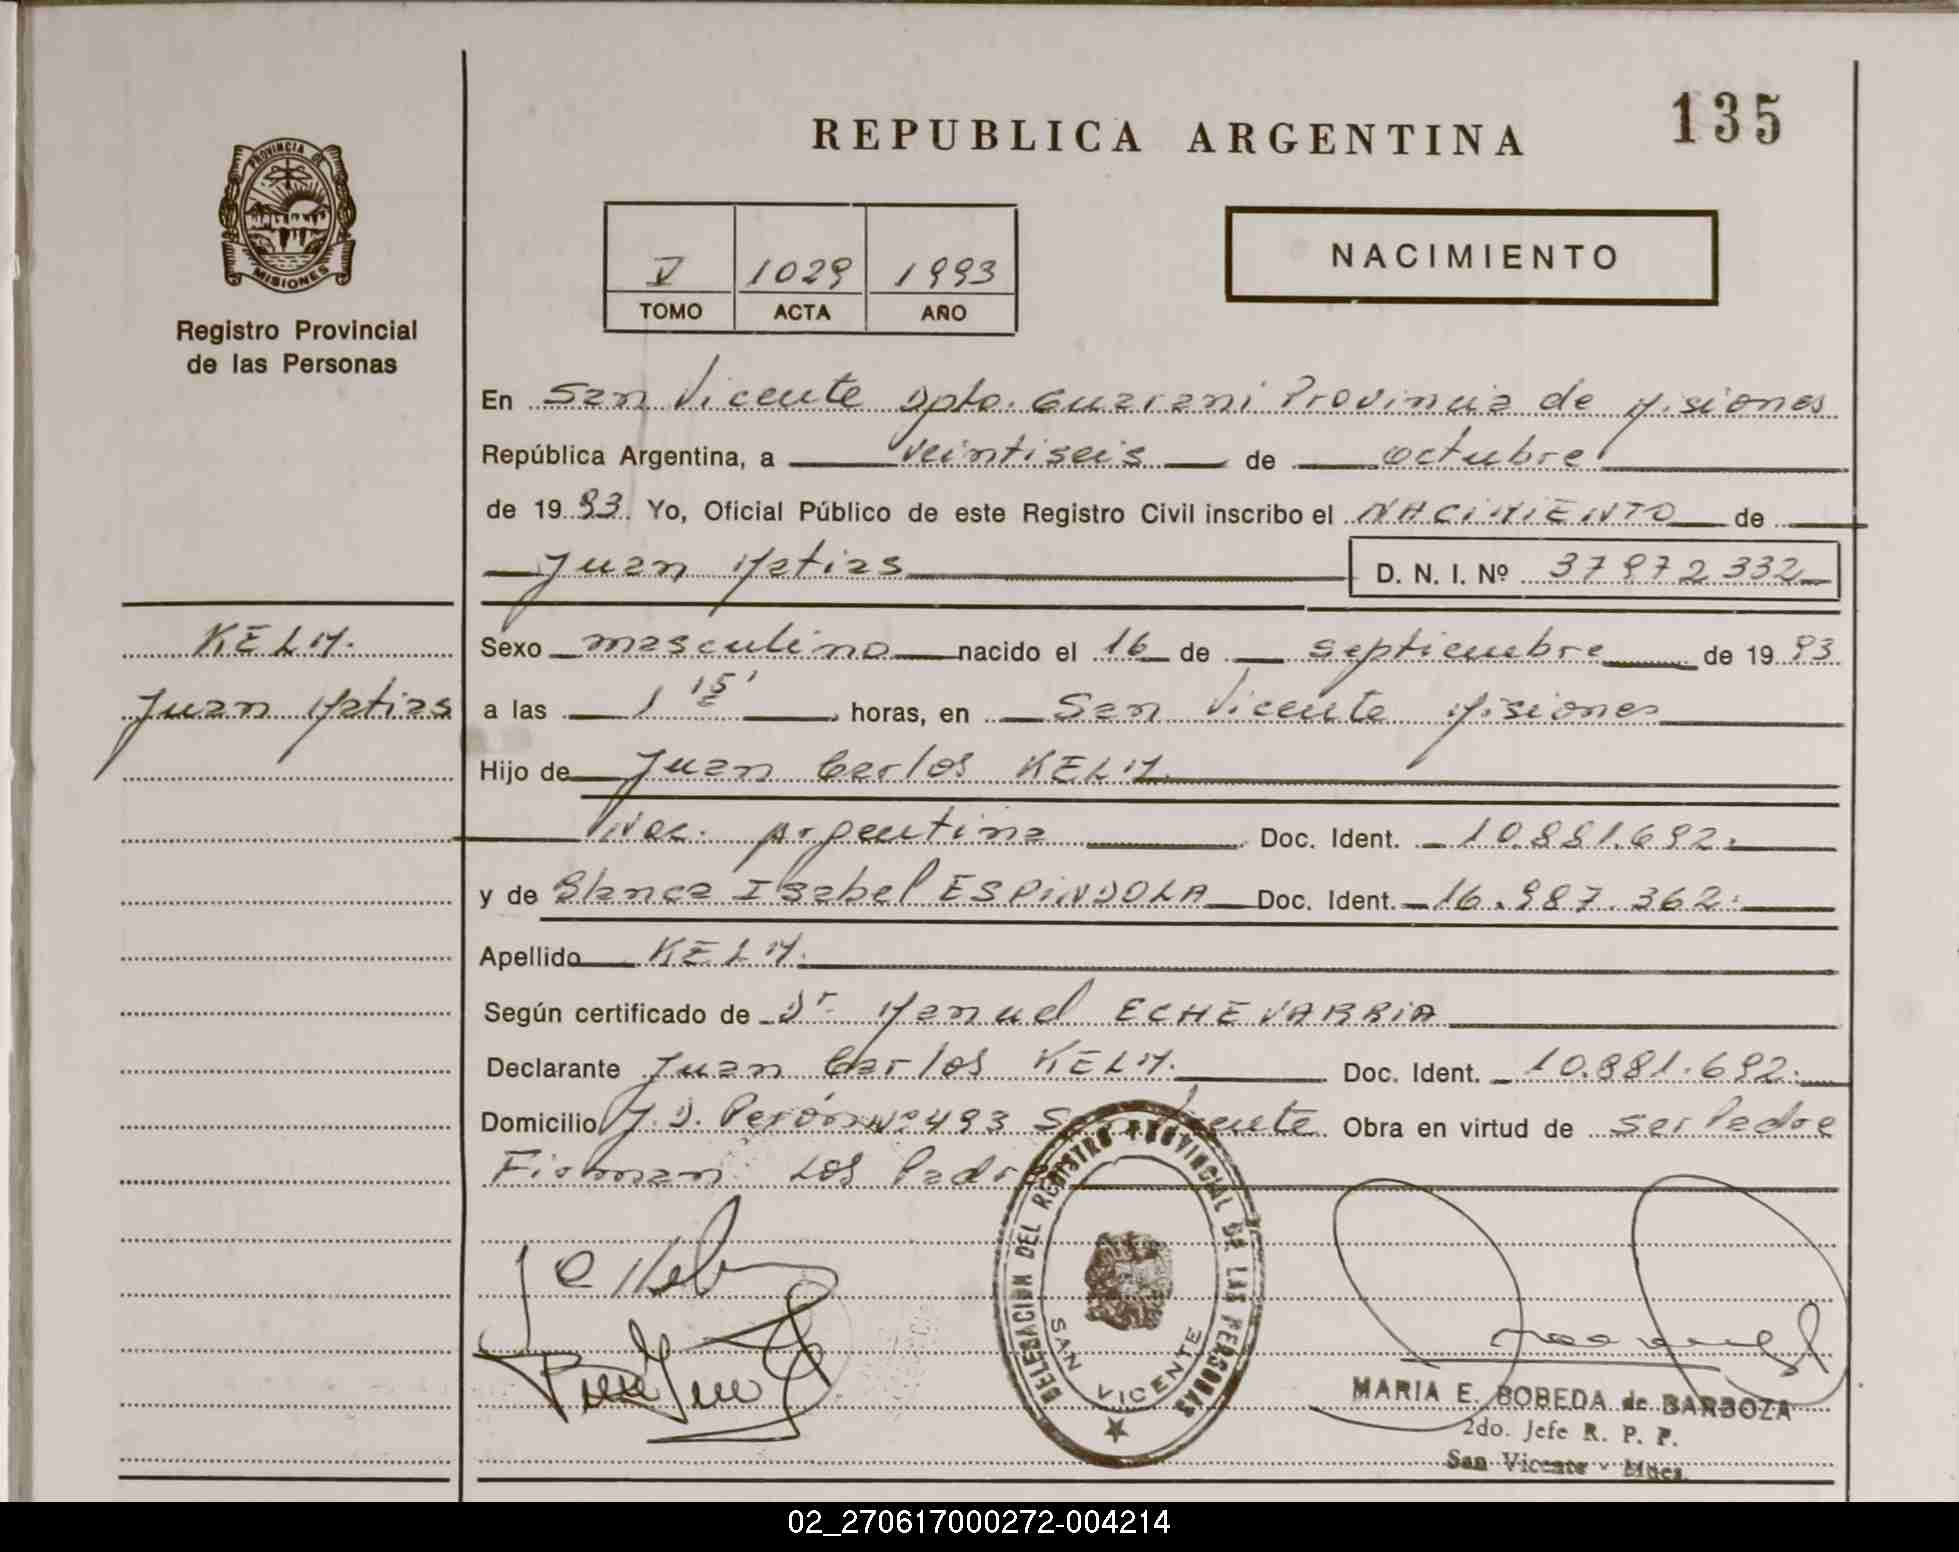 135
REPUBLICA ARGENTINA
PROVINCIA DE
MISIONES
Registro Provincial
de las Personas
V 1029 1993
TOMO ACTA AÑO
NACIMIENTO
En San Vicente Dpto. Guarani Provincia de Misiones
República Argentina, a veintiseis de octubre
de 1993. Yo, Oficial Público de este Registro Civil inscribo el NACIMIENTO de
Juan Matias D. N. I. Nº 37972332
KELM.
Juan Matias
Sexo masculino nacido el 16 de septiembre de 1993
a las 1 15' horas, en San Vicente Misiones
Hijo de Juan Carlos KELM.
Nac. Argentina Doc. Ident. 10.881.692.
y de Blanca Isabel ESPINDOLA Doc. Ident. 16.987.362.
Apellido KELM.
Según certificado de Dr. Manuel ECHEVARRIA
Declarante Juan Carlos KELM. Doc. Ident. 10.881.692.
Domicilio J.D. Perón Nº 493 San Vicente Obra en virtud de ser Padre
Firman Los Padres
DELEGACION DEL REGISTRO PROVINCIAL DE LAS PERSONAS
SAN VICENTE
MARIA E. BOBEDA de BARBOZA
2do. Jefe R. P. P.
San Vicente - Mnes.
02_270617000272-004214